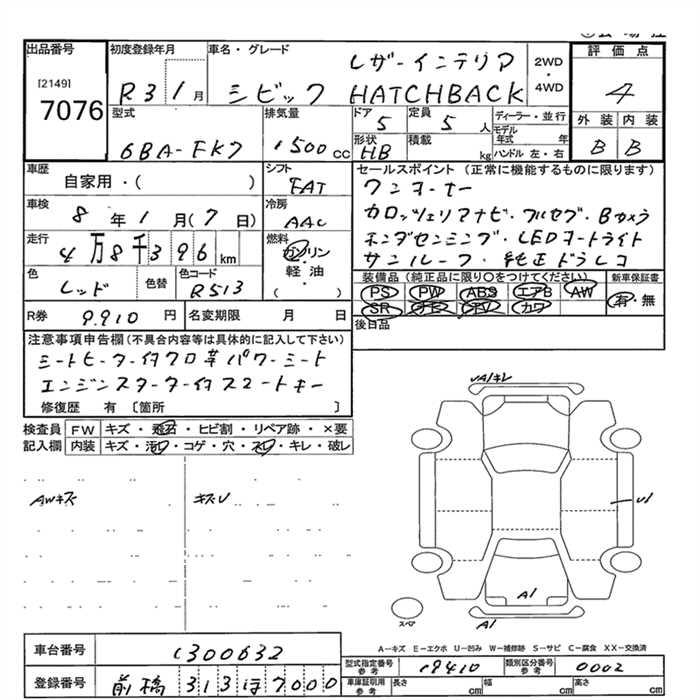 出品番号
[2149]
7076
初度登録年月
R3 1月
車名・グレード
レザーインテリア
シビック HATCHBACK
2WD
・
4WD
評価点
4
型式
6BA-FK7
排気量
1500cc
ドア
5
定員
5人
形状
HB
積載
kg
ディーラー・並行
モデル年式 年
ハンドル 左・右
外装 内装
B B
車歴
自家用・( )
シフト
FAT
車検
8年1月(7日)
冷房
AAC
走行
4万8千396km
燃料
ガソリン
・
軽油・
( )
色
レッド
色替
色コード
R513
R券
9.910円
名変期限 月 日
セールスポイント(正常に機能するものに限ります)
ワンオーナー
カロッツェリアナビ・フルセグ・Bカメラ
ホンダセンシング・LEDオートライト
サンルーフ・純正ドラレコ
装備品(純正品に限り○をつけてください)
PS PW ABS エアB AW
SR ナビ TV カワ
新車保証書
有・無
後日品
注意事項申告欄(不具合内容等は具体的に記入して下さい)
シートヒーター付クロ革パワーシート
エンジンスターター付スマートキー
修復歴 有〔箇所 〕
検査員 FW キズ・飛石・ヒビ割・リペア跡・×要
記入欄 内装 キズ・汚れ・コゲ・穴・スレ・キレ・破レ
AWキズ
キズU
UA1キレ
U1
A1
A1
スペア
A-キズ E-エクボ U-凹み W-補修跡 S-サビ C-腐食 XX-交換済
車台番号
1300632
登録番号
前橋 313 ほ 7000
型式指定番号
参考
19410
類別区分番号
参考
0002
車庫証明用
参考
長さ cm
幅 cm
高さ cm